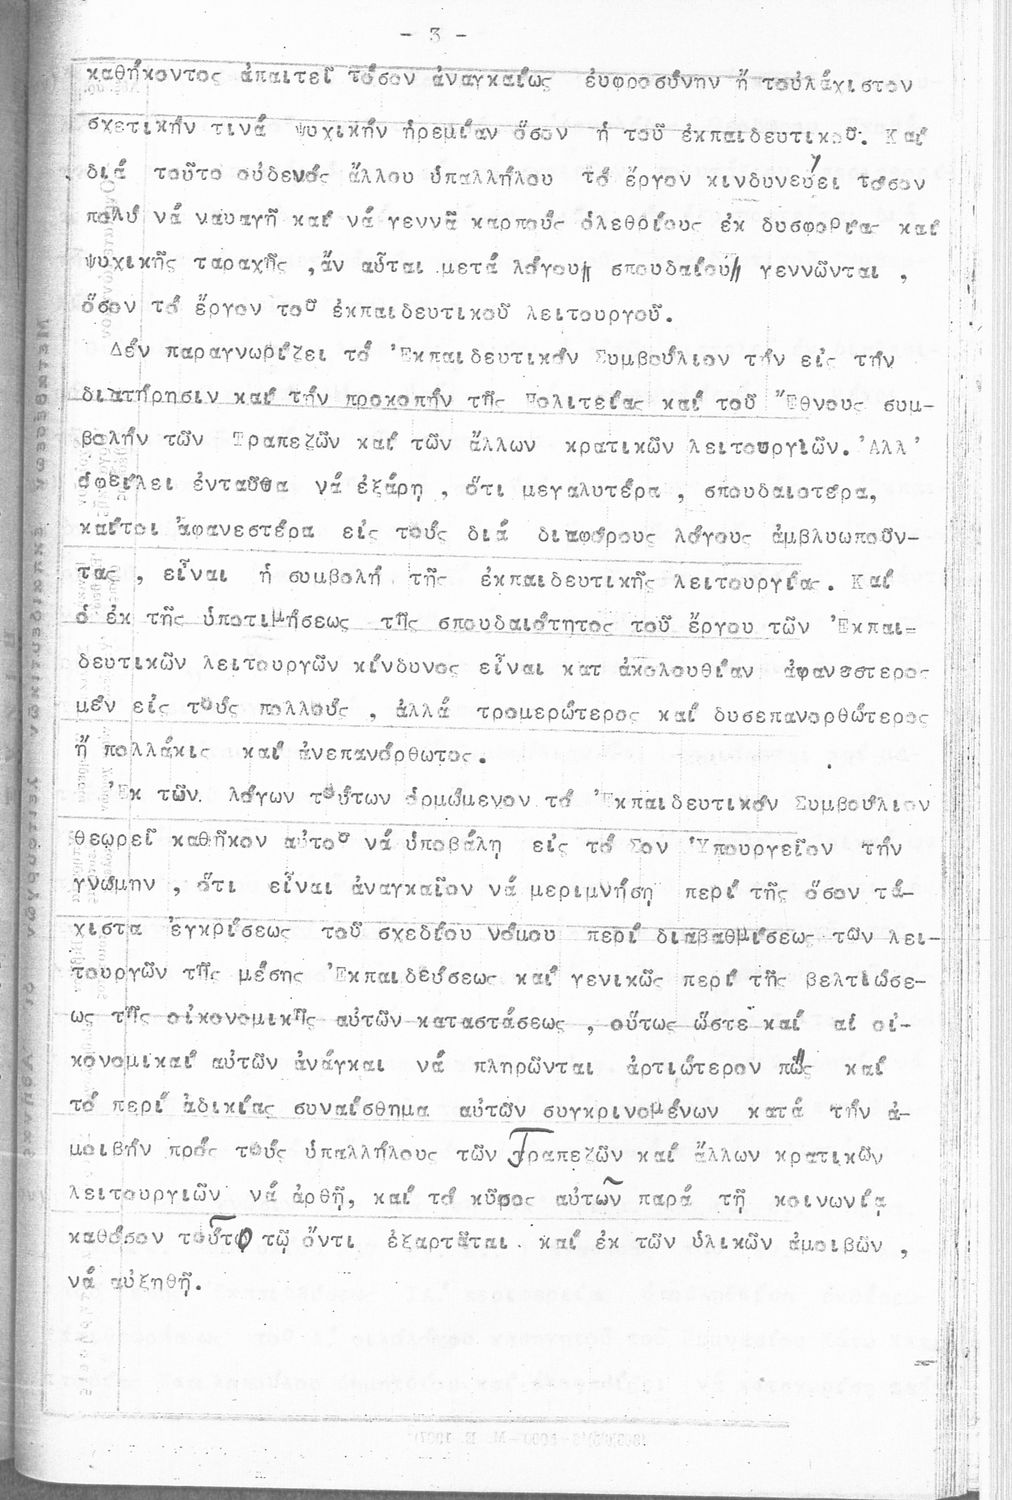 - 3 -
καθῆκοντος ἀπαιτεῖ τόσον ἀναγκαίως εὐφροσύνην ἤ τοὐλάχιστον
σχετικήν τινά ψυχικήν ἠρεμίαν ὅσον ἡ τοῦ ἐκπαιδευτικοῦ. Καί
διά τοῦτο οὐδενός ἄλλου ὑπαλλήλου τό ἔργον κινδυνεύει τόσον
πολύ νά ναυαγῇ καί νά γεννᾷ καρπούς ὀλεθρίους ἐκ δυσφορίας καί
ψυχικῆς ταραχῆς ,ἄν αὗται μετά λόγου σπουδαίου γεννῶνται ,
ὅσον τό ἔργον τοῦ ἐκπαιδευτικοῦ λειτουργοῦ.
Δέν παραγνωρίζει τό Ἐκπαιδευτικόν Συμβούλιον τήν εἰς τήν
διατήρησιν καί τήν προκοπήν τῆς Πολιτείας καί τοῦ Ἔθνους συμ-
βολήν τῶν Τραπεζῶν καί τῶν ἄλλων κρατικῶν λειτουργιῶν. Ἀλλ'
ὀφείλει ἐνταῦθα νά ἐξάρῃ , ὅτι μεγαλυτέρα , σπουδαιοτέρα,
καίτοι ἀφανεστέρα εἰς τούς διά διαφόρους λόγους ἀμβλυωποῦν-
τας , εἶναι ἡ συμβολή τῆς ἐκπαιδευτικῆς λειτουργίας. Καί
ὁ ἐκ τῆς ὑποτιμήσεως τῆς σπουδαιότητος τοῦ ἔργου τῶν Ἐκπαι=
δευτικῶν λειτουργῶν κίνδυνος εἶναι κατ ἀκολουθίαν ἀφανεστερος
μέν εἰς τούς πολλούς , ἀλλά τρομερώτερος καί δυσεπανορθώτερος
ἤ πολλάκις καί ἀνεπανόρθωτος.
Ἐκ τῶν λόγων τούτων ὁρμώμενον τό Ἐκπαιδευτικόν Συμβούλιον
θεωρεῖ καθῆκον αὐτοῦ νά ὑποβάλῃ εἰς τό Σον Ὑπουργεῖον τήν
γνώμην , ὅτι εἶναι ἀναγκαῖον νά μεριμνήσῃ περί τῆς ὅσον τά-
χιστα ἐγκρίσεως τοῦ σχεδίου νόμου περί διαβαθμίσεως τῶν λει-
τουργῶν τῆς μέσης Ἐκπαιδεύσεως καί γενικῶς περί τῆς βελτιώσε-
ως τῆς οἰκονομικῆς αὐτῶν καταστάσεως , οὕτως ὥστε καί αἱ οἰ-
κονομικαί αὐτῶν ἀνάγκαι νά πληρῶνται ἀρτιώτερον πως καί
τό περί ἀδικίας συναίσθημα αὐτῶν συγκρινομένων κατά τήν ἀ-
μοιβήν πρός τούς ὑπαλλήλους τῶν Τραπεζῶν καί ἄλλων κρατικῶν
λειτουργιῶν νά ἀρθῇ, καί τό κῦρος αὐτῶν παρά τῇ κοινωνίᾳ
καθόσον τοῦτο τῷ ὄντι ἐξαρτᾶται καί ἐκ τῶν ὑλικῶν ἀμοιβῶν ,
νά αὐξηθῇ.